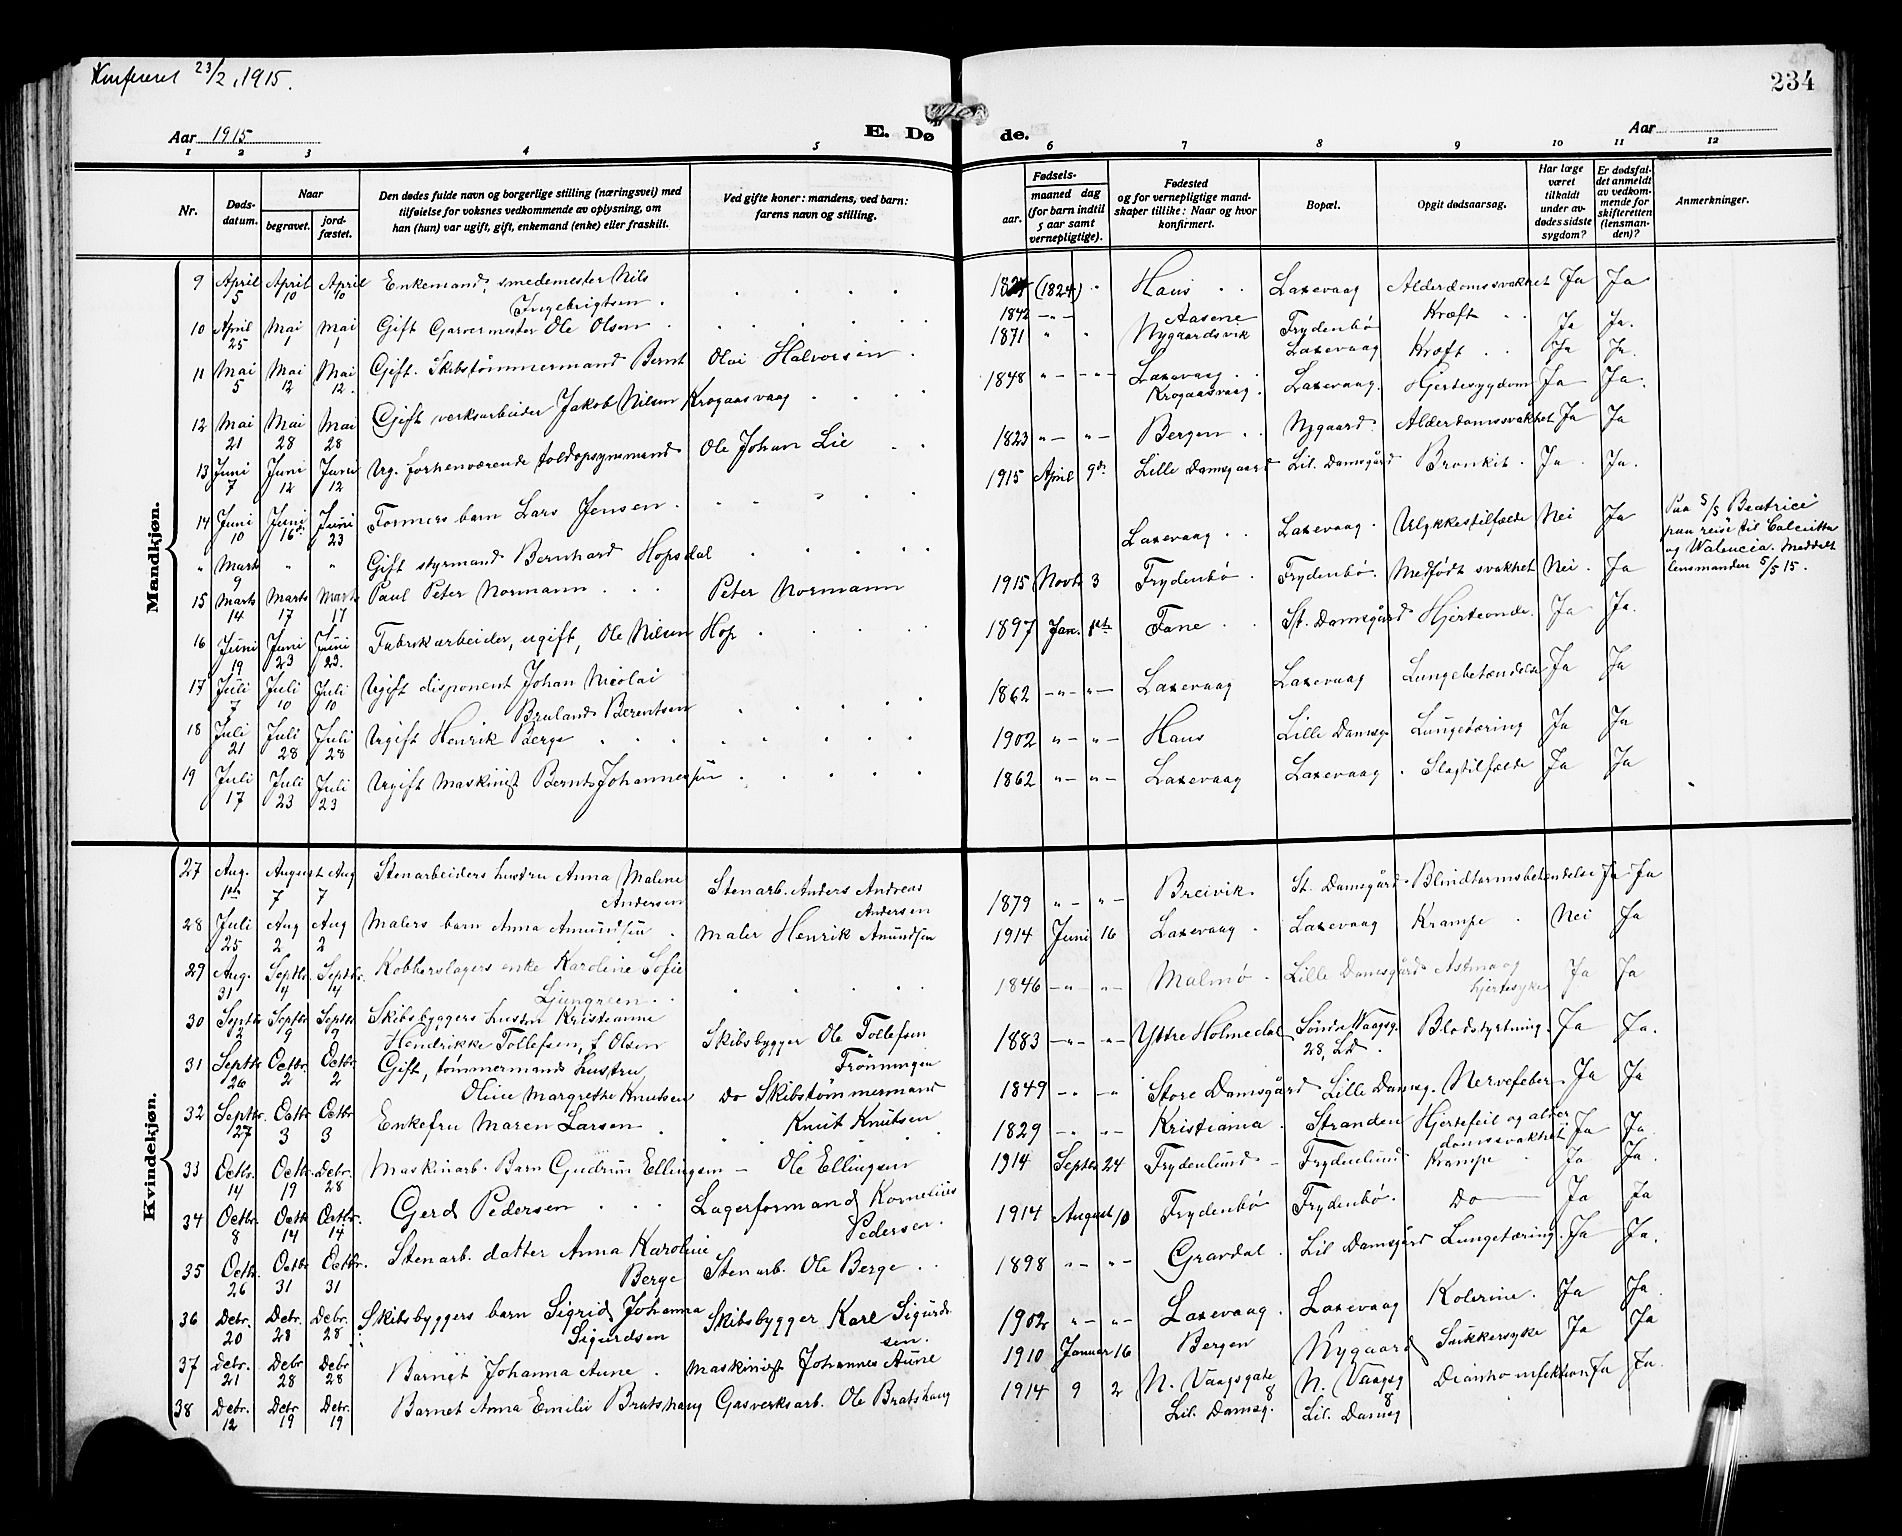 Konfereret 23/2, 1915.
234
Aar 1915
E. Dø de.
Aar
1 2 3 4 5 6 7 8 9 10 11 12
Nr.
Døds-datum.
Naar
begravet.
jord-fæstet.
Den dødes fulde navn og borgerlige stilling (næringsvei) med
tilføielse for voksnes vedkommende av oplysning, om
han (hun) var ugift, gift, enkemand (enke) eller fraskilt.
Ved gifte koner: mandens, ved barn:
farens navn og stilling.
Fødsels-
aar.
maaned dag
(for barn indtil
5 aar samt
vernepligtige).
Fødested
og for vernepligtige mand-
skaper tillike: Naar og hvor
konfirmert.
Bopæl.
Opgit dødsaarsag.
Har læge
været
tilkaldt
under av-
dødes sidste
sygdom?
Er dødsfal-
det anmeldt
av vedkom-
mende for
skifteretten
(lensman-
den)?
Anmerkninger.
Mandkjøn.
9 April 5 April 10 April 10 Enkemand, smedemester Nils Ingebrigtsen. (1824) Haus Laxevaag Alderdomssvakhet Ja Ja
10 April 25 Mai 1 Mai 1 Gift Garvermester Ole Olsen 1842 Aasene Frydenbø Kræft Ja Ja.
1871 Nygaardsvik Laxevaag Kræft Ja Ja.
11 Mai 5 Mai 12 Mai 12. Gift. Skibstømmermand Bernt Olai Halvorsen 1848 Laxevaag Krogaasvaag. Laxevaag. Hjertesygdom Ja Ja.
12 Mai 21 Mai 28 Mai 28 Gift verksarbeider Jakob Nilsen Krogaasvaag 1823 Bergen Nygaard Alderdomssvakhet Ja Ja
13 Juni 7 Juni 12 Juni 12 Ug. forhenværende toldopsynsmand Ole Johan Lie 1915 April 9de Lille Damsgaard Lil. Damsgård Bronkit. Ja Ja.
14 Juni 10 Juni 16 Juni 23 Formers barn Lars Jensen. Laxevaag Laxevaag. Ulykkestilfælde Nei Ja
Paa S/S Beatrice
paa reise til Calcutta
og Walencia. Meddelt
lensmanden 5/5 15.
" Marts 9 " " Gift styrmand Bernhard Hopsdal 1915 Novb 3 Frydenbø. Frydenbø. Medfødt svakhet Nei. Ja
15 Marts 14 Marts 17 Marts 17 Paul Peter Normann Peter Normann 1897 Jan. Fane St. Damsgård Hjerteonde. Ja Ja.
16 Juni 19 Juni 23 Juni 23. Fabrikarbeider, ugift, Ole Nilsen Hop
17 Juli 7 Juli 10 Juli 10 Ugift disponent Johan Nicolai Bruland Berentsen 1862 Laxevaag Laxevaag Lungebetændelse Ja Ja
18 Juli 21 Juli 28 Juli 28 Ugift Henrik Berge 1902 Haus Lille Damsg. Lungetæring Ja Ja
19 Juli 17 Juli 23 Juli 23 Ugift Maskinist Bernt Johannessen 1862 Laxevaag Laxevaag. Slagtilfælde Ja Ja
Kvindekjøn.
27 Aug. 1ste August 7 Aug 7 Stenarbeiders hustru Anna Maline Andersen Stenarb. Anders Andreas Andersen 1879 Breivik St. Damsgård. Blindtarmsbetændelse Ja Ja
28 Juli 25 Aug 2 Aug 2 Malers barn Anna Amundsen Maler Henrik Amundsen 1914 Juni 16 Laxevaag. Laxevaag Krampe Nei Ja
29 Aug. 31 Septbr. 4 Septbr. 4 Kobberslagers enke Karoline Sofie Ljungreen 1846 Malmø Lille Damsgård Astma og hjertesyke Ja Ja
30 Septbr 2 Septbr 9 Septbr 9 Skibsbyggers hustru Kristianne Hendrikke Tollefsen, f. Olsen Skibsbygger Ole Tollefsen Frønningen 1883 Yttre Holmedal Søndre Vaagsg. 28, Ld. Blodstyrtning. Ja Ja.
31 Septbr 26 Octbr. 2 Octbr. 2 Gift, tømmermands hustru Oline Margrethe Knutsen do Skibstømmermand Knut Knutsen 1849 Store Damsgård Lille Damsg. Nervefeber Ja Ja
32 Septbr. 27 Octbr 3 Octbr 3 Enkefru Maren Larsen 1829 Kristiania. Stranden Hjertefeil og alderdomssvakhet Ja Ja.
33 Octbr. 14 Octbr. 19 Octbr. 28 Maskinarb. Barn Gudrun Ellingsen Ole Ellingsen 1914 Septbr 24 Frydenlund Frydenlund Krampe Ja Ja.
34 Octbr. 8 Octbr 14 Octbr. 14 Gerd Pedersen Lagerformand Kornelius Pedersen. 1914 August 10 Frydenbø Frydenbø. Do Ja Ja
35 Octbr. 26 Octbr 31 Octbr. 31 Stenarb. datter Anna Karoline Berge Stenarb. Ole Berge 1898 Gravdal. Lil Damsgård Lungetæring. Ja Ja.
36 Debr. 20 Debr. 28 Debr. 28 Skibsbyggers barn Sigrid Johanna Sigurdsen Skibsbygger Karl Sigurdsen. 1902 Laxevaag. Laxevaag Kolerine. Ja Ja
37 Debr. 21 Debr 28 Debr 28 Barnet Johanna Aune Maskinist Johannes Aune 1910 Januar 16 Bergen Nygaard Sukkersyke Ja Ja
38 Debr. 12 Debr 19 Debr. 19 Barnet Anna Emilie Bratshaug Gasverksarb. Ole Bratshaug 1914 9 2 N. Vaagsgate 8 Lil. Damsg. N. Vaagsg 8 Lil. Damsg Ja Ja.